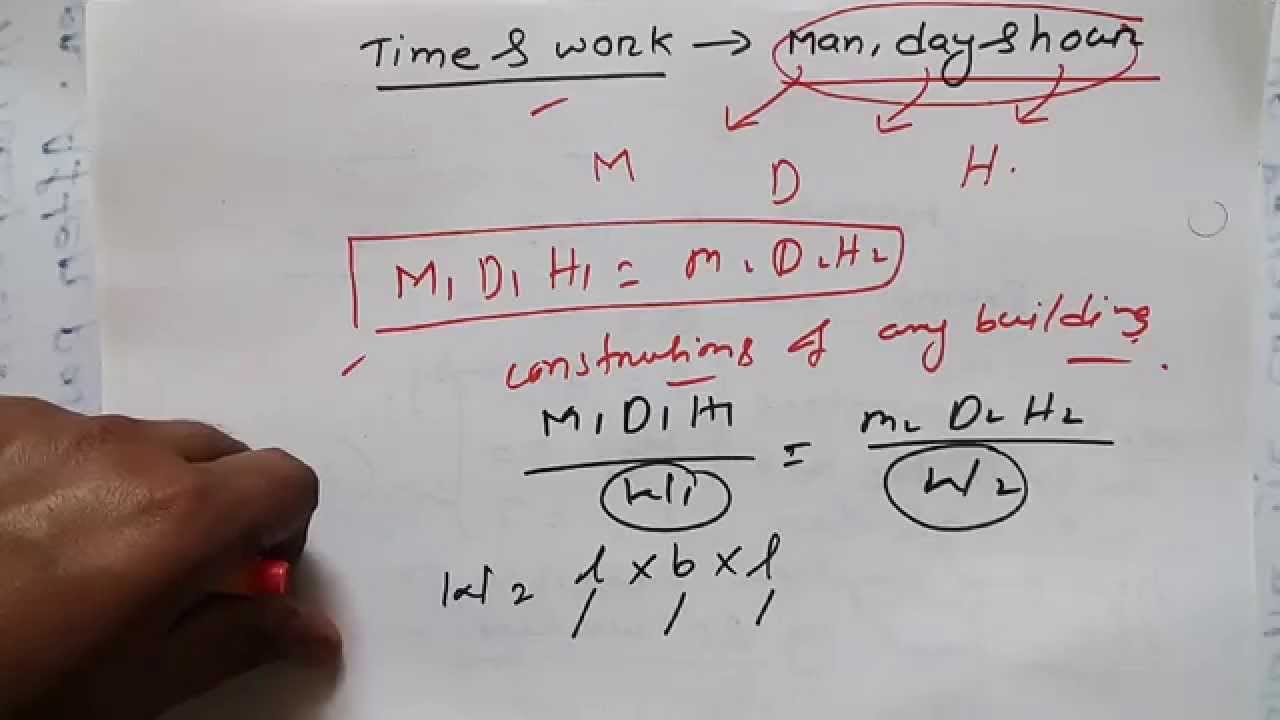 Time & work → Man, day & hour
M D H.
M₁ D₁ H₁ = m₂ D₂ H₂
constrution of any building.
M₁ D₁ H₁ = m₂ D₂ H₂
W₁ W₂
W = l × b × l